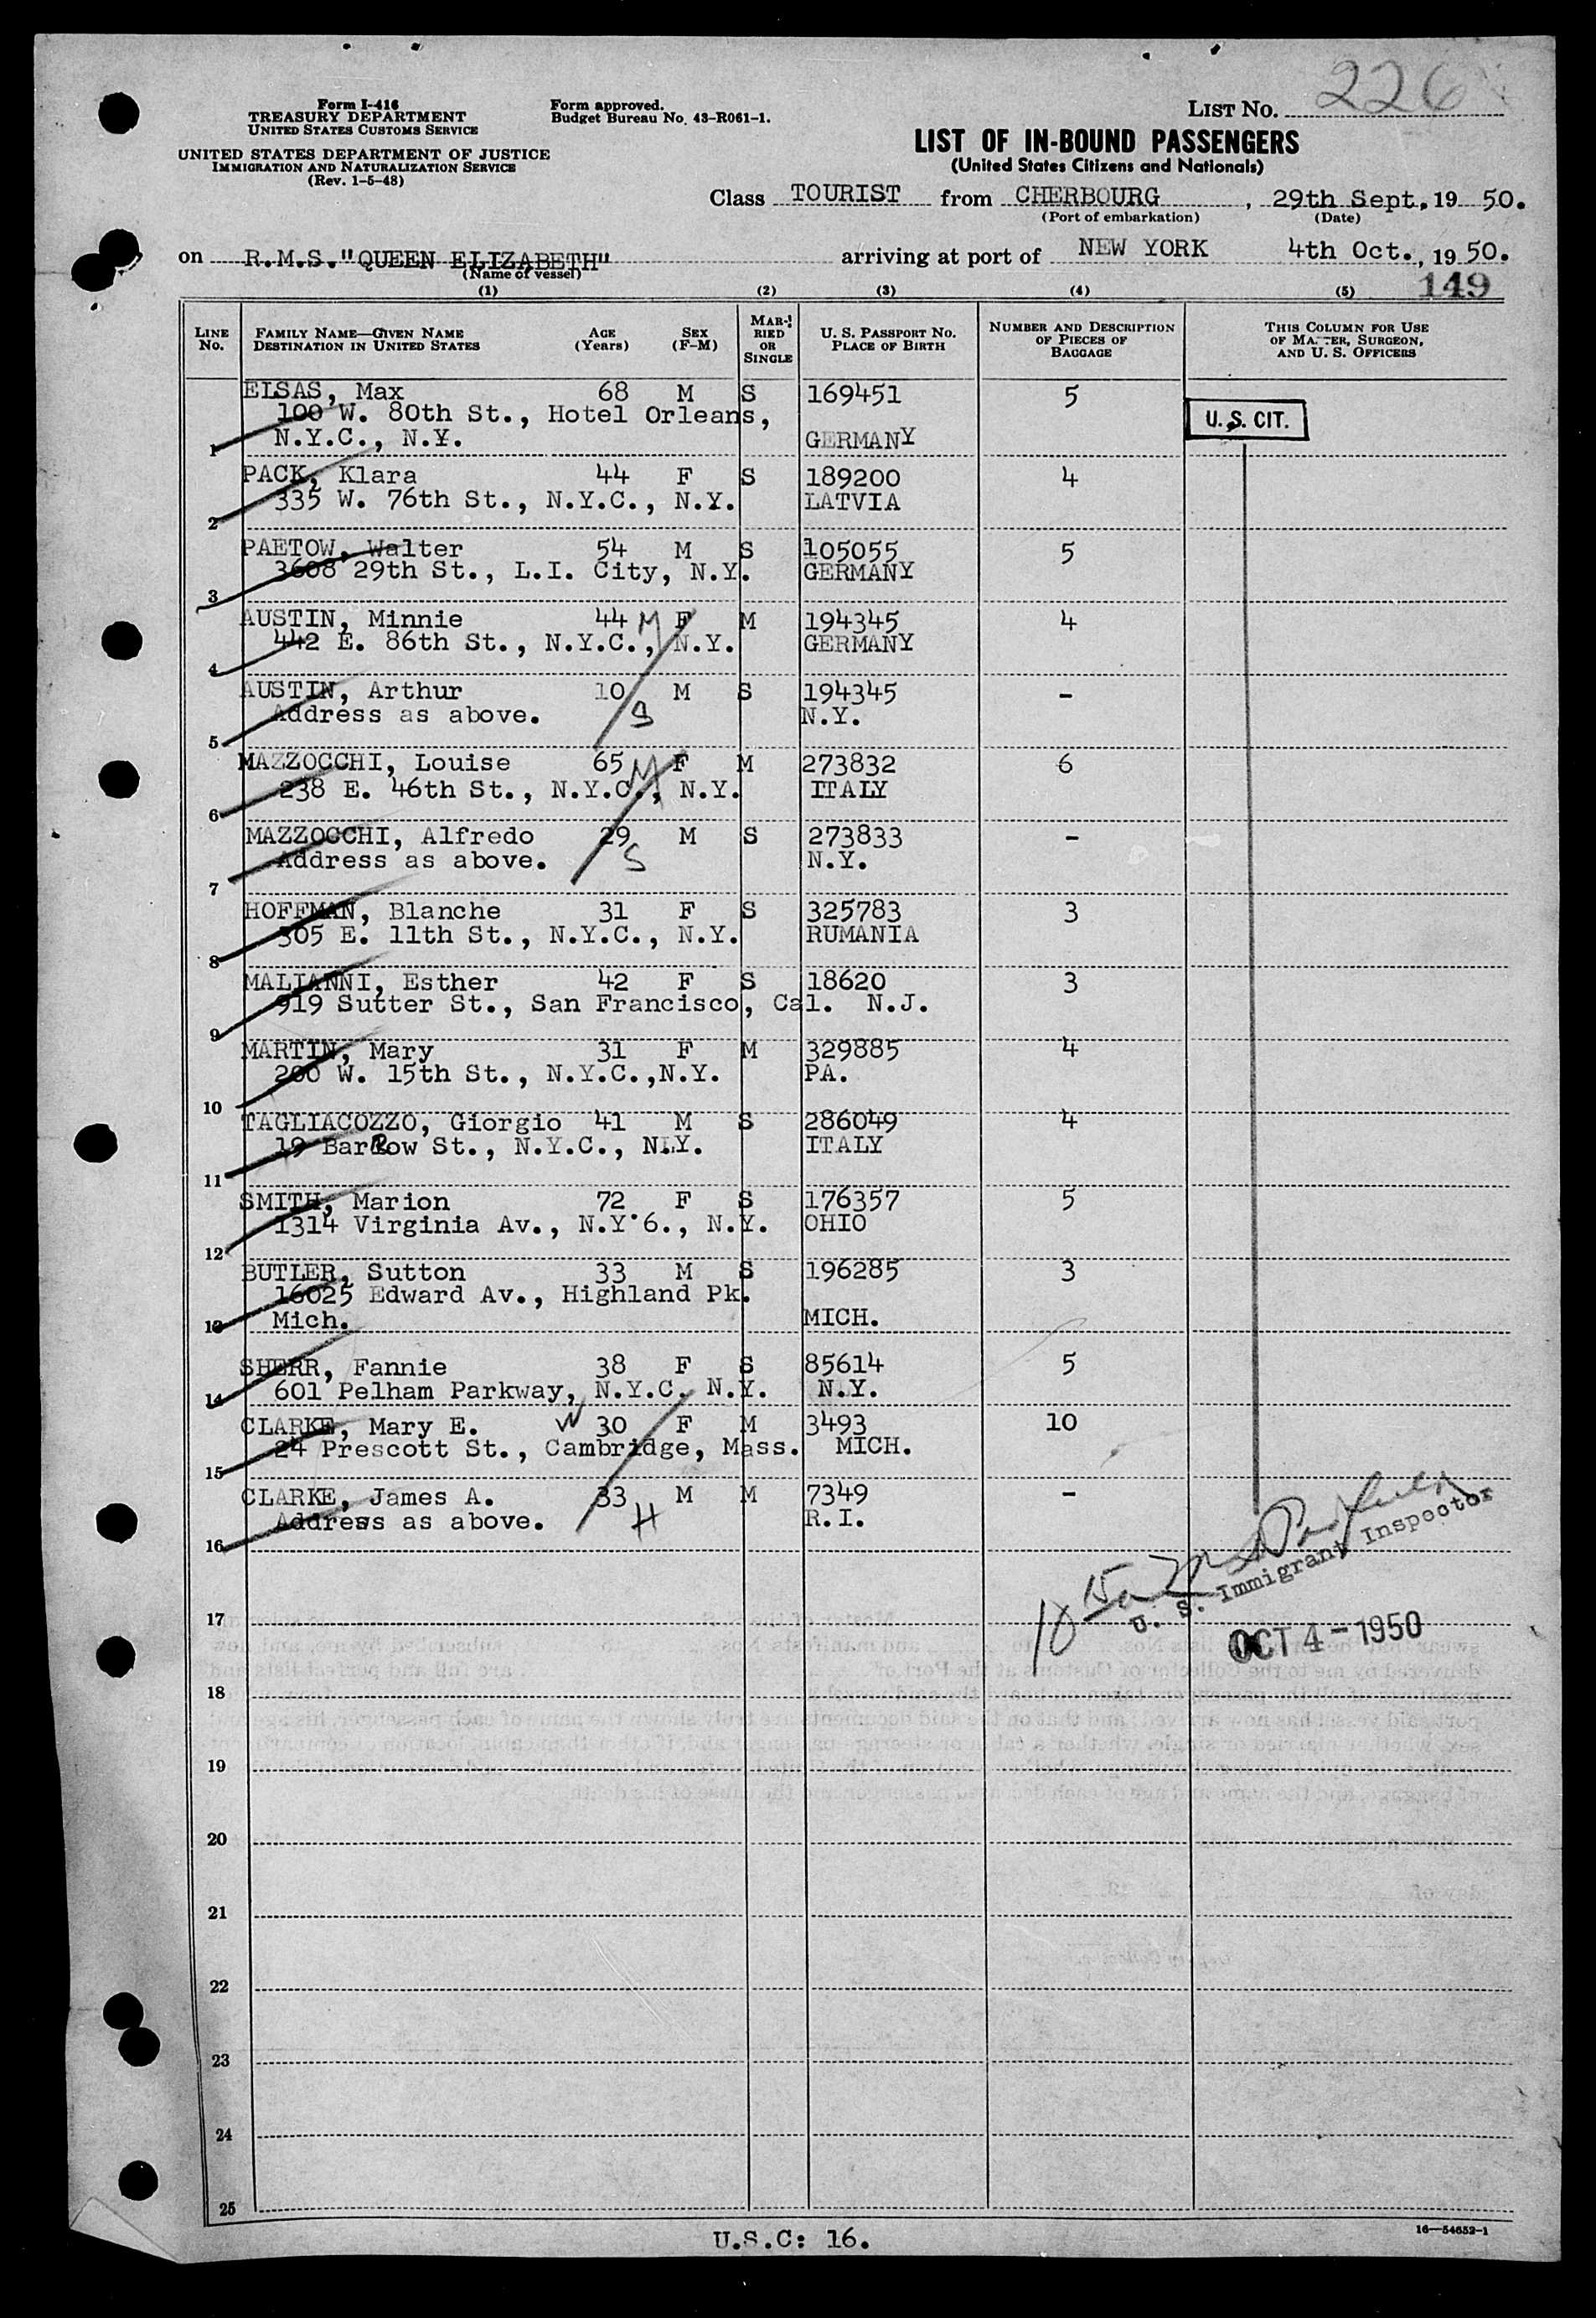 Form I-416
TREASURY DEPARTMENT
UNITED STATES CUSTOMS SERVICE
UNITED STATES DEPARTMENT OF JUSTICE
IMMIGRATION AND NATURALIZATION SERVICE
(Rev. 1-5-48)
Form approved.
Budget Bureau No. 43-R061-1.
LIST NO. 226
LIST OF IN-BOUND PASSENGERS
(United States Citizens and Nationals)
Class TOURIST from CHERBOURG, 29th Sept. 19 50.
(Port of embarkation) (Date)
on R.M.S. "QUEEN ELIZABETH" arriving at port of NEW YORK 4th Oct., 19 50.
(Name of vessel)
149
(1) (2) (3) (4) (5)
LINE NO. FAMILY NAME—GIVEN NAME DESTINATION IN UNITED STATES AGE (Years) SEX (F-M) MARRIED OR SINGLE U. S. PASSPORT NO. PLACE OF BIRTH NUMBER AND DESCRIPTION OF PIECES OF BAGGAGE THIS COLUMN FOR USE OF MASTER, SURGEON, AND U. S. OFFICERS
ELSAS, Max 68 M S 169451 5
100 W. 80th St., Hotel Orleans,
U.S. CIT.
1 N.Y.C., N.Y. GERMANY
PACK, Klara 44 F S 189200 4
335 W. 76th St., N.Y.C., N.Y. LATVIA
2
PAETOW, Walter 54 M S 105055 5
3608 29th St., L.I. City, N.Y. GERMANY
3
AUSTIN, Minnie 44 M F M 194345 4
442 E. 86th St., N.Y.C., N.Y. GERMANY
4
AUSTIN, Arthur 10 M S 194345 -
Address as above. S N.Y.
5
MAZZOCCHI, Louise 65 M F M 273832 6
238 E. 46th St., N.Y.C., N.Y. ITALY
6
MAZZOCCHI, Alfredo 29 M S 273833 -
Address as above. S N.Y.
7
HOFFMAN, Blanche 31 F S 325783 3
305 E. 11th St., N.Y.C., N.Y. RUMANIA
8
MALIANNI, Esther 42 F S 18620 3
919 Sutter St., San Francisco, Cal. N.J.
9
MARTIN, Mary 31 F M 329885 4
200 W. 15th St., N.Y.C.,N.Y. PA.
10
TAGLIACOZZO, Giorgio 41 M S 286049 4
19 Barrow St., N.Y.C., N.Y. ITALY
11
SMITH, Marion 72 F S 176357 5
1314 Virginia Av., N.Y.6., N.Y. OHIO
12
BUTLER, Sutton 33 M S 196285 3
16025 Edward Av., Highland Pk.
13 Mich. MICH.
SHERR, Fannie 38 F S 85614 5
601 Pelham Parkway, N.Y.C. N.Y. N.Y.
14
CLARKE, Mary E. W 30 F M 3493 10
24 Prescott St., Cambridge, Mass. MICH.
15
CLARKE, James A. 33 M M 7349 -
Address as above. H R.I.
16
U. S. Immigrant Inspector
17
OCT 4 - 1950
18
19
20
21
22
23
24
25
U.S.C: 16.
16—54652-1